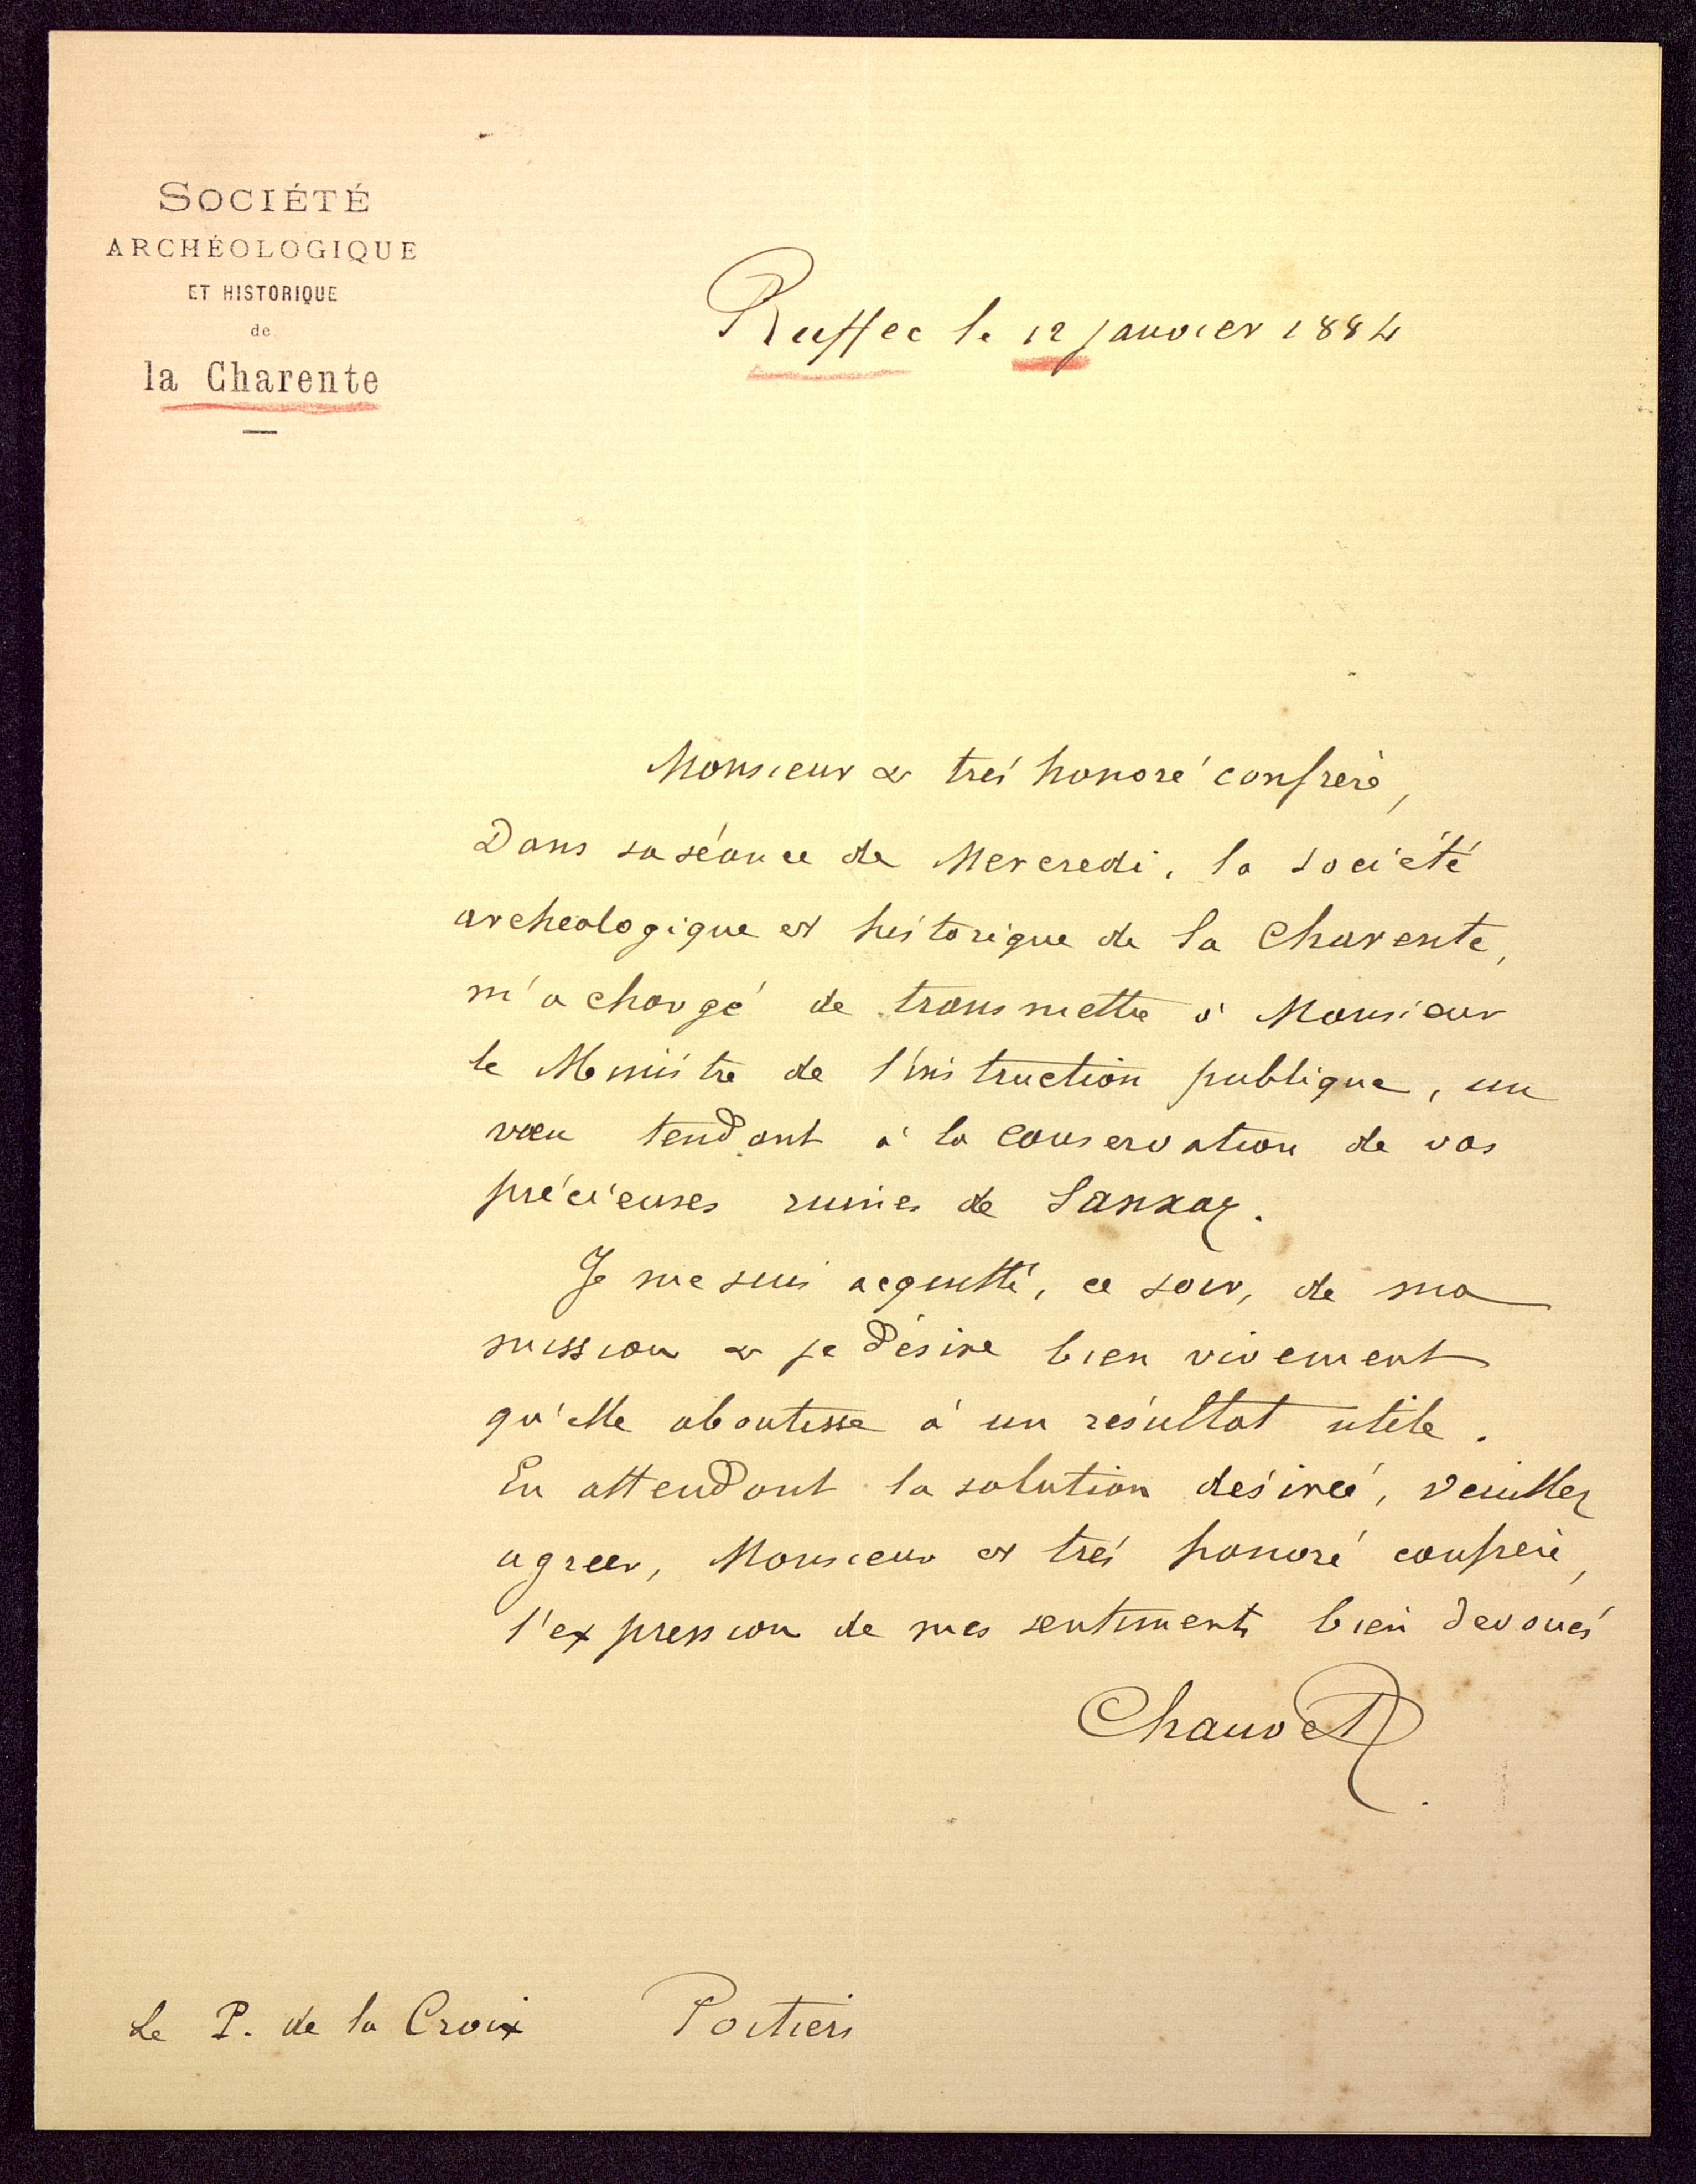 SOCIÉTÉ
ARCHÉOLOGIQUE
ET HISTORIQUE
de
la Charente
Ruffec le 12 janvier 1884
Monsieur & très honoré confrère,
Dans sa séance de Mercredi, la société
archéologique et historique de la Charente,
m'a chargé de transmettre à Monsieur
le Ministre de l'instruction publique, un
vœu tendant à la conservation de vos
précieuses ruines de Sanxay.
Je me suis acquitté, ce soir, de ma
mission & je désire bien vivement
qu'elle aboutisse à un résultat utile.
En attendant la solution désirée, veuillez
agréer, Monsieur et très honoré confrère,
l'expression de mes sentiments bien dévoués
Chauvet
Le P. de la Croix Poitiers